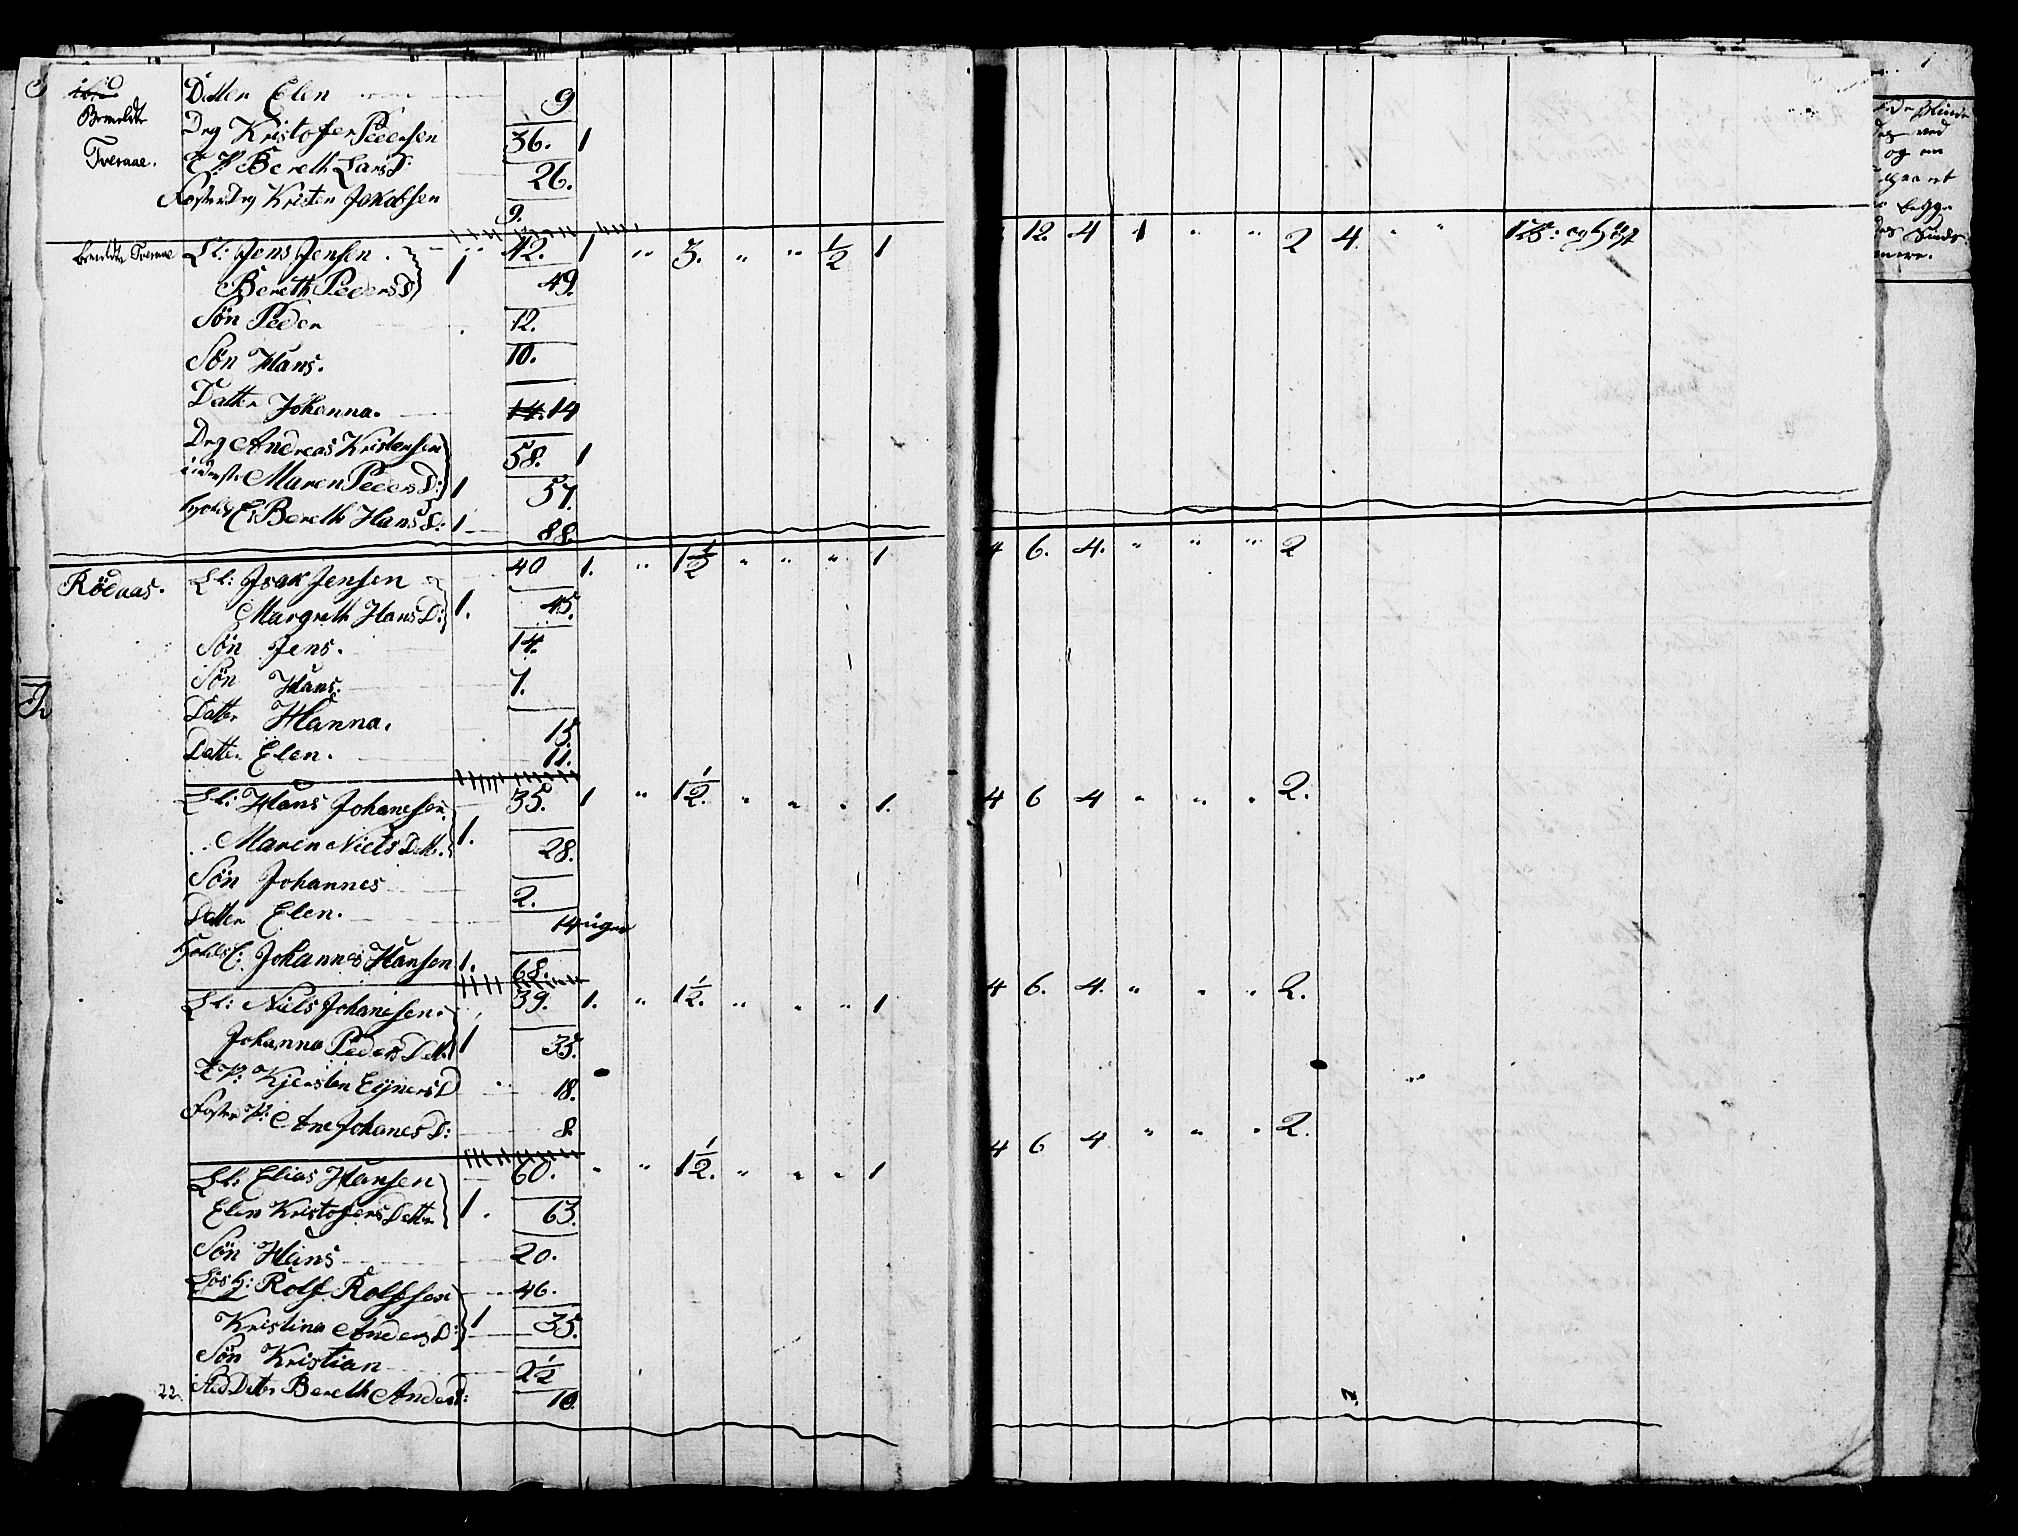 Datter Elen 9
Bemeldte
Drg Kristofer Pedersen 36. 1
Tveraae.
T. P: Bereth Lars D: 26.
Foster Drg Kristen Jakobsen 9.
bemeldte Tveraae L l: Jens Jensen . 42. 1 " 3. " " 1/2 1 12. 4 1 " " " 2 4. " "
Bereth Peders D 1 49.
Søn Peder 12.
Søn Hans. 10.
Datter Johanna. 14
Drg Andreas Kristensen 58. 1
inderste Maren Peders D: 1 57.
Bereth Hans D: 1 88.
Rödaas. L l: Isak Jensen 40 1. " 1 1/2 " " " 1. 4 6. 4. " " " 2
Margreth Hans D: 1. 45.
Søn Jens. 14.
Søn Hans. 7.
Datter Hanna. 15
Datter Elen. 11.
L l: Hans Johanesen 35. 1 " 1 1/2. " " " 1. 4 6 4 " " " 2.
Maren Niels Datt. 1. 28.
Søn Johannes 2.
Datter Elen. 14 uger
Johannes Hansen 1. 68.
L l: Niels Johanesen. 39. 1. " 1 1/2. " " " 1 4 6. 4. " " " 2.
Johanna Peders Datt 1 35.
T. P: Kjersten Ejners D 18.
Foster P: Ane Johanes D: 8
L l: Elias Hansen 60. " " 1 1/2. " " " 1 4 6 4 " " " 2.
Elen Kristofers Datter 1. 63.
Søn Hans 20.
Rolf Rolfsen 46.
Kristina Anders D: 1 35.
Søn Kristian 2 1/2
22. Sted Datter Bereth Anders: 10.